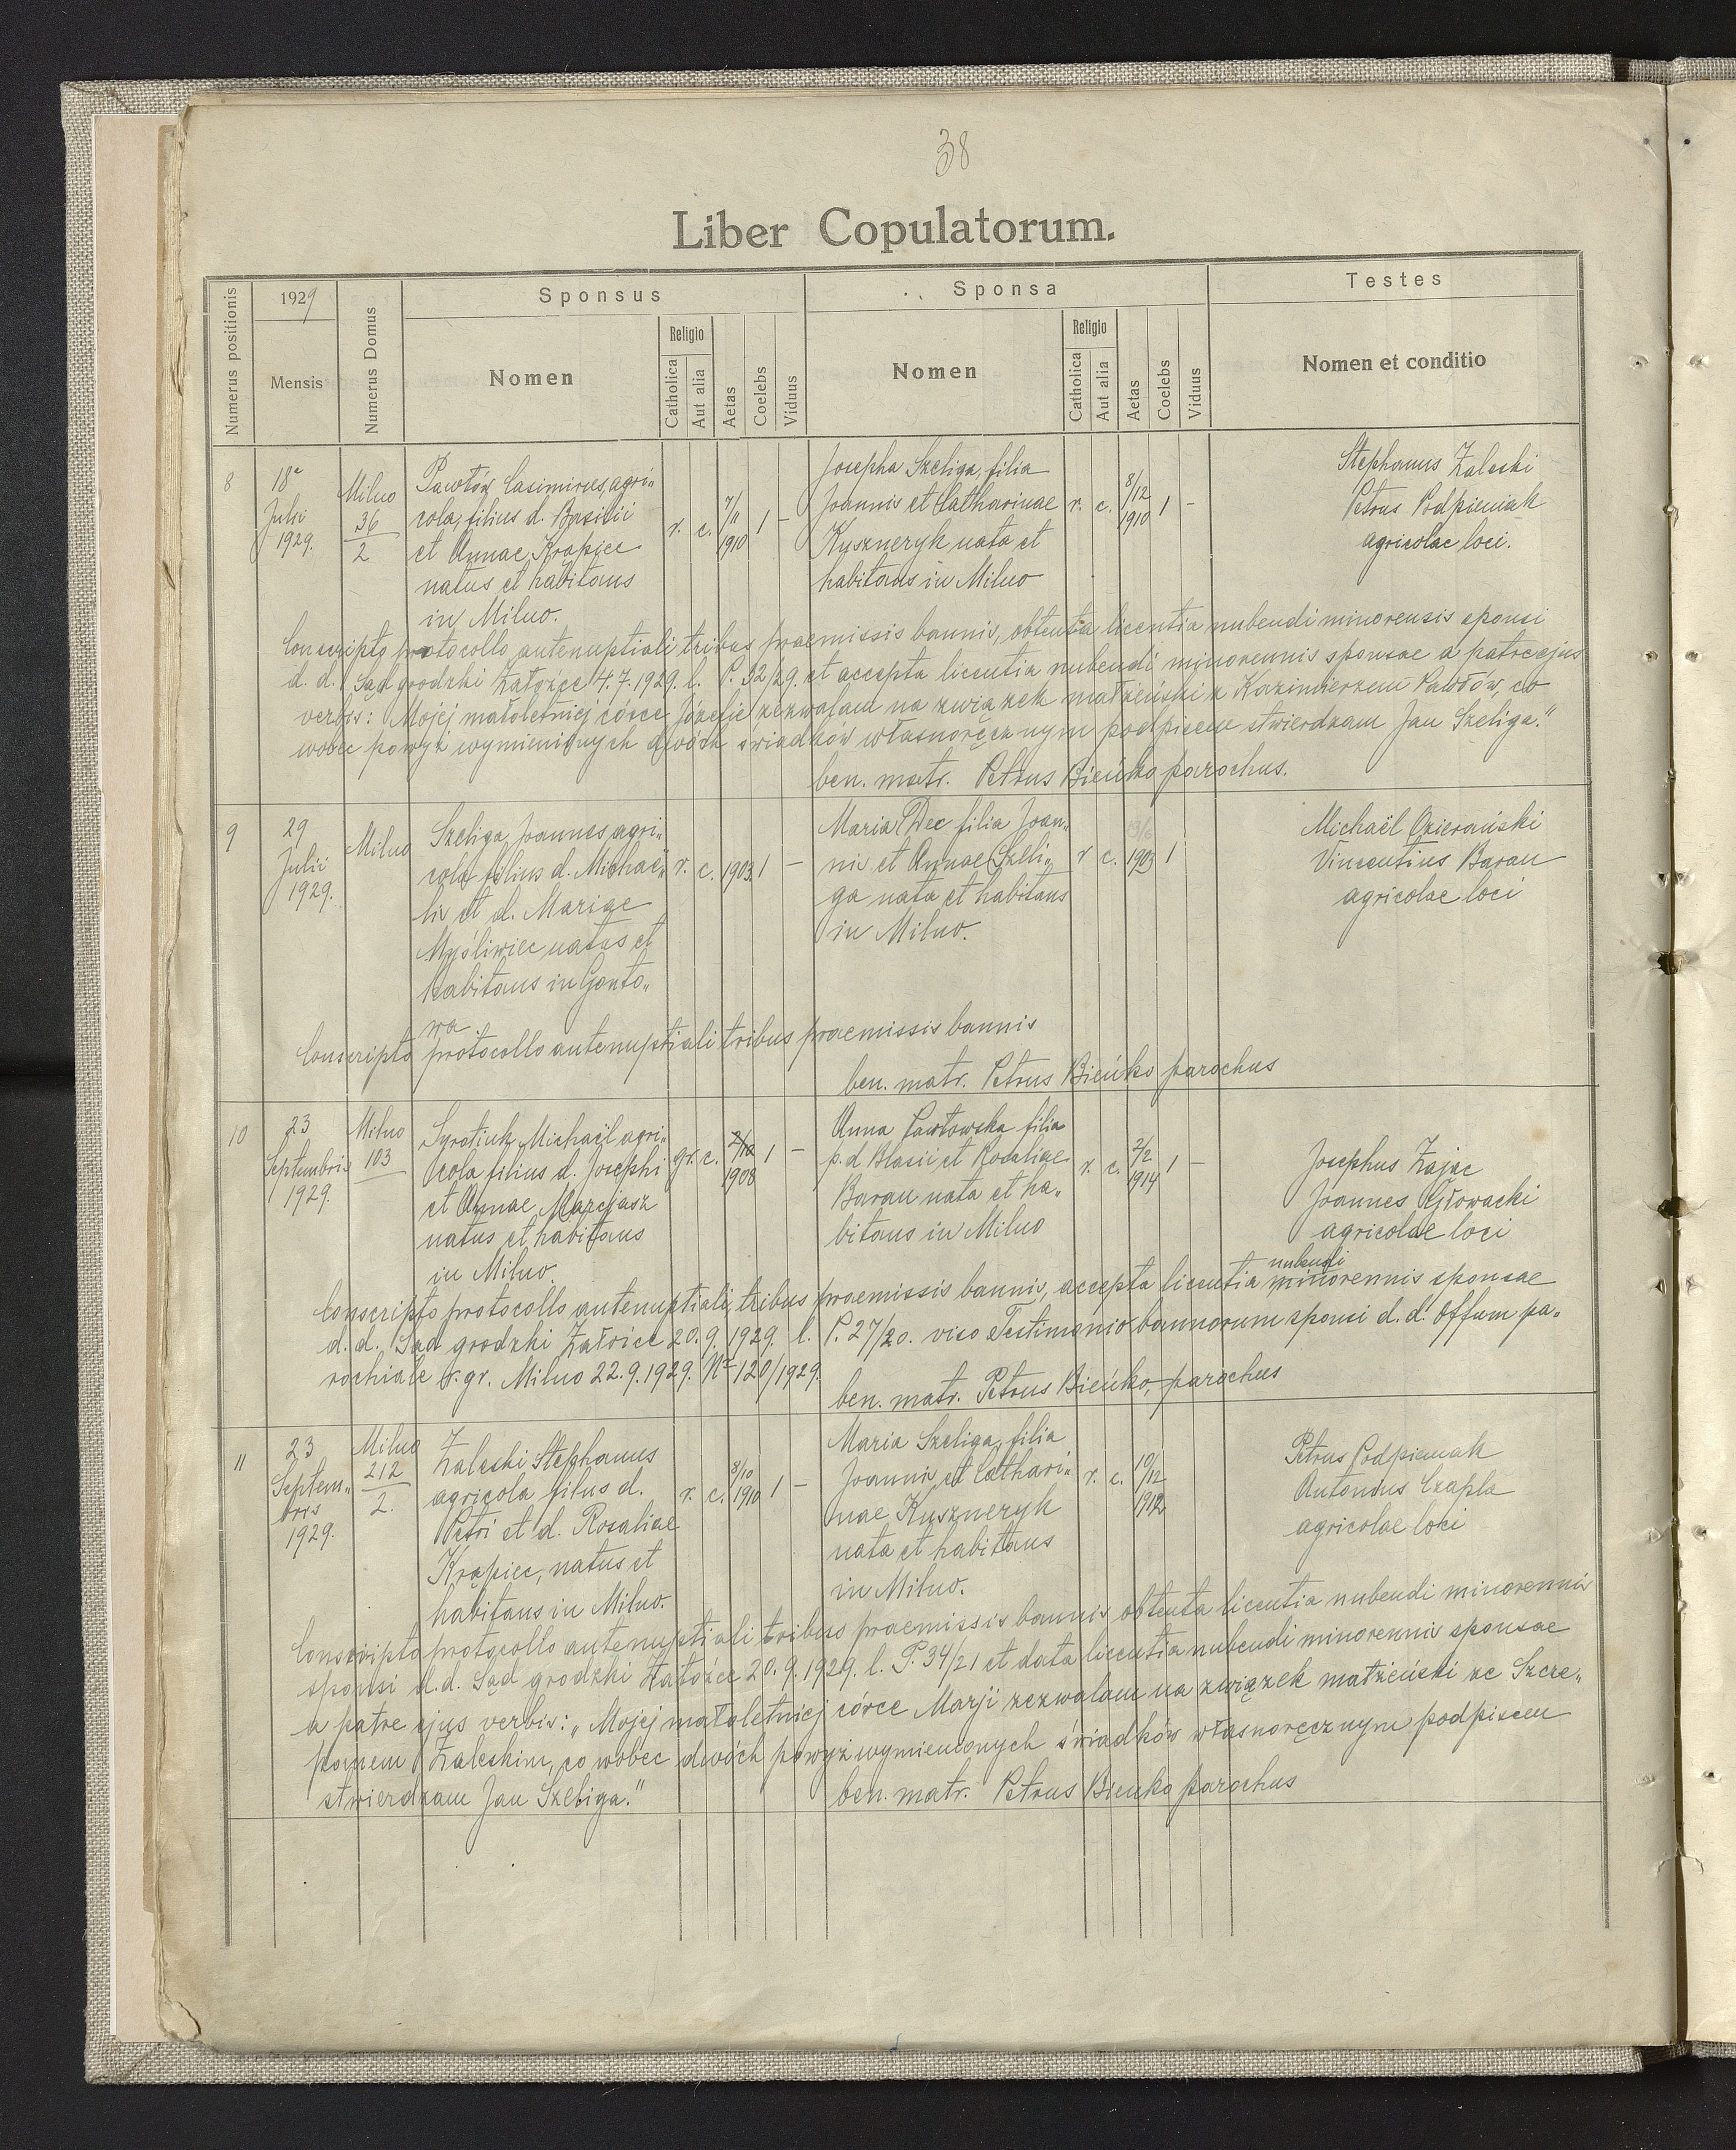 38
Liber Copulatorum.
Numerus positionis
1929
Mensis
Numerus Domus
Sponsus
Nomen
Religio
Catholica
Aut alia
Aetas
Coelebs
Viduus
Sponsa
Nomen
Religio
Catholica
Aut alia
Aetas
Coelebs
Viduus
Testes
Nomen et conditio
8
18
Julii
1929.
Milno
36
2
Pawłów Casimirus, agri-
cola, filius d. Basilii
et Annae Krąpiec
natus et habitans
in Milno.
r. c.
7/11
1910
1 -
Josepha Szeliga, filia
Joannis et Catharinae
Kuszneryk nata et
habitans in Milno
r. c.
8/12
1910
1 -
Stephanus Zaleski
Petrus Podpieniak
agricolae loci.
Conscripto protocollo antenuptiali tribus praemissis bannis, obtenta licentia nubendi minorensis sponsi
d. d. Sąd grodzki Załoźce 4.7.1929. l. P. 32/29. et accepta licentia nubendi minorennis sponsae a patre ejus
verbis: Mojej małoletniej córce Józefie zezwalam na związek małżeński z Kazimierzem Pawłów, co
wobec powyż wymienionych dwóch świadków własnoręcznym podpisem stwierdzam Jan Szeliga."
ben. matr. Petrus Bieńko parochus.
9
29
Julii
1929.
Milno
Szeliga Joannes agri-
cola filius d. Michaë-
lis et d. Mariae
Myśliwiec natus et
habitans in Gonto-
wa.
r. c. 1903. 1 -
Maria Dec filia Joan-
nis et Annae Szeli-
ga nata et habitans
in Milno.
r c. 1903 1
Michaël Ozierański
Vincentius Baran
agricolae loci
Conscripto protocollo antenuptiali tribus praemissis bannis
ben. matr. Petrus Bieńko parochus
10
23
Septembris
1929.
Milno
103
Syrotiuk Michaël agri-
cola filius d. Josephi
et Annae Marcjasz
natus et habitans
in Milno.
gr. c.
2/12
1908
1 -
Anna Pawłowska filia
p. d Blasii et Rosaliae
Baran nata et ha-
bitans in Milno
r. c.
2/2
1914
1 -
Josephus Zając
Joannes Głowacki
agricolae loci
Conscripto protocollo antenuptiali, tribus praemissis bannis, accepta licentia nubendi minorennis sponsae
d. d. Sąd grodzki Załoźce 20.9.1929. l. P. 27/20. viso Testimonio bannorum sponsi d. d. Offum pa-
rochiale r. gr. Milno 22.9.1929. Nr 120/1929.
ben. matr. Petrus Bieńko, parochus
11
23
Septem-
bris
1929.
Milno
212
2.
Zaleski Stephanus
agricola filus d.
Petri et d. Rosaliae
Krąpiec, natus et
habitans in Milno.
r. c.
8/10
1910
1 -
Maria Szeliga, filia
Joannis et Cathari-
nae Kuszneryk
nata et habitans
in Milno.
r. c.
19/12
1912
Petrus Podpieniak
Antonius Czapla
agricolae loci
Conscripto protocollo antenuptiali tribus praemissis bannis, obtenta licentia nubendi minorennis
sponsi d. d. Sąd grodzki Załoźce 20.9.1929. l. P. 34/21 et data licentia nubendi minorennis sponsae
a patre ejus verbis: „Mojej małoletniej córce Marji zezwalam na związek małżeński ze Szcze-
panem Zaleskim, co wobec dwóch powyż wymienionych świadków własnoręcznym podpisem
stwierdzam Jan Szeliga."
ben. matr. Petrus Bieńko parochus